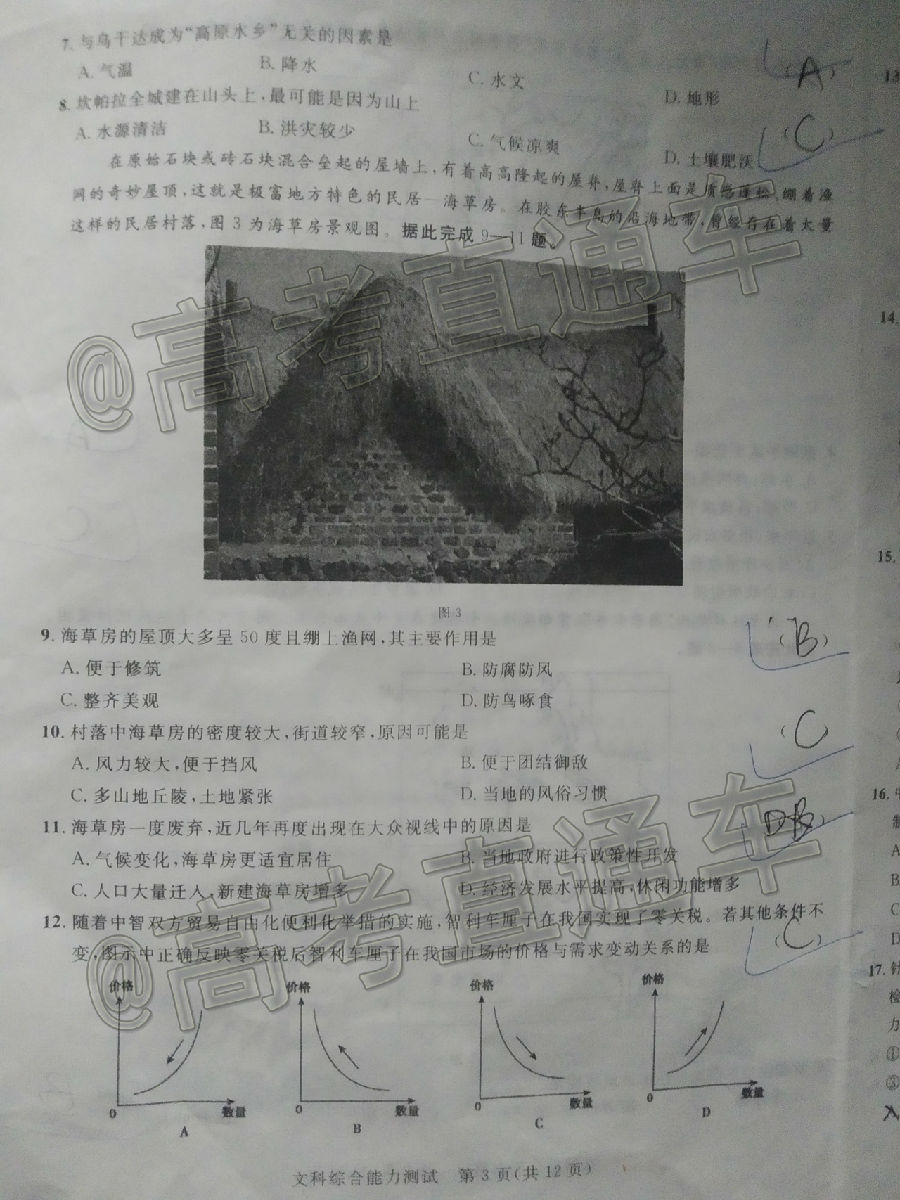 7. 与乌干达成为“高原水乡”无关的因素是
A. 气温 B. 降水 C. 水文 D. 地形
(A)
8. 坎帕拉全城建在山头上，最可能是因为山上
A. 水源清洁 B. 洪灾较少 C. 气候凉爽 D. 土壤肥沃
(C)
在原始石块或砖石块混合垒起的屋墙上，有着高高隆起的屋脊，屋脊上面是质感蓬松、绷着渔
网的奇妙屋顶，这就是极富地方特色的民居—海草房。在胶东半岛的沿海地带，曾经存在着大量
这样的民居村落，图3为海草房景观图。据此完成9—11题。
@高考直通车
图3
9. 海草房的屋顶大多呈50度且绷上渔网，其主要作用是
(B)
A. 便于修筑 B. 防腐防风
C. 整齐美观 D. 防鸟啄食
10. 村落中海草房的密度较大，街道较窄，原因可能是
(C)
A. 风力较大，便于挡风 B. 便于团结御敌
C. 多山地丘陵，土地紧张 D. 当地的风俗习惯
11. 海草房一度废弃，近几年再度出现在大众视线中的原因是
A. 气候变化，海草房更适宜居住 B. 当地政府进行政策性开发
C. 人口大量迁入，新建海草房增多 D. 经济发展水平提高，休闲功能增多
@高考直通车
12. 随着中智双方贸易自由化便利化举措的实施，智利车厘子在我国实现了零关税。若其他条件不
变，图示中正确反映零关税后智利车厘子在我国市场的价格与需求变动关系的是
(C)
价格 价格 价格 价格
0 数量 0 数量 0 数量 0 数量
A B C D
文科综合能力测试 第3页(共12页)
13
14.
15.
16.
A
B
C
D
17.
检
力
①
③